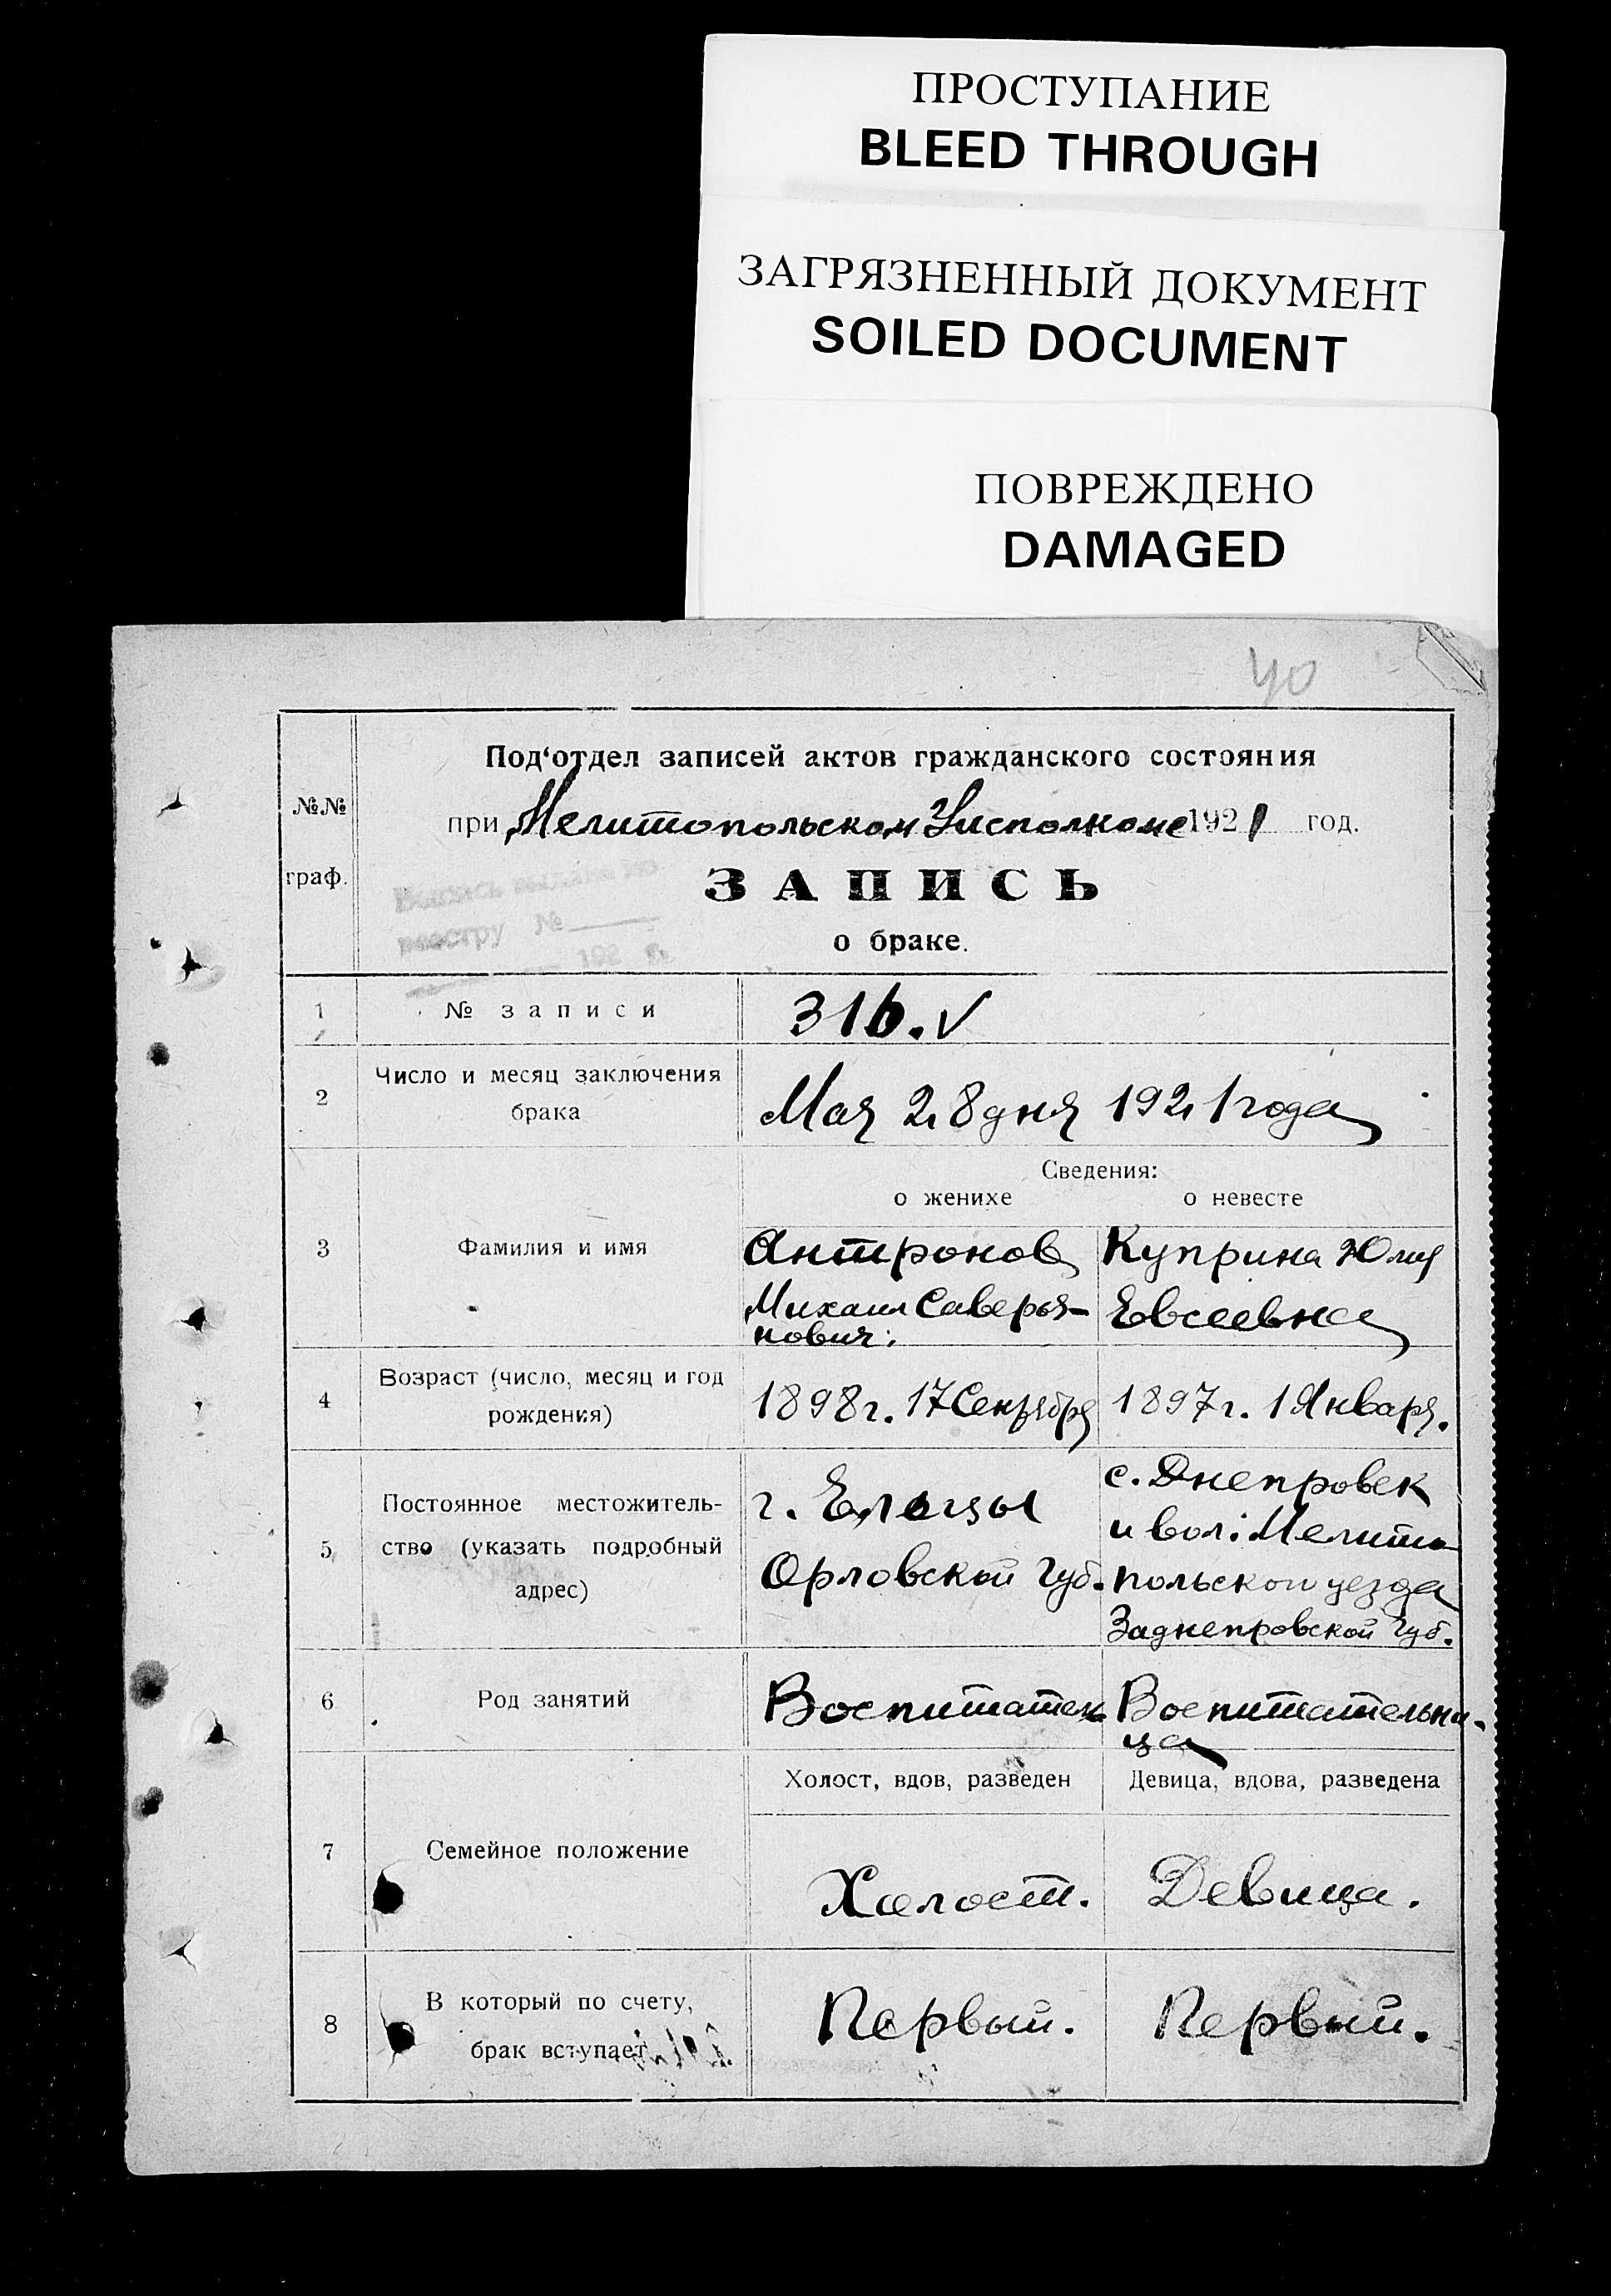 ПРОСТУПАНИЕ
BLEED THROUGH
ЗАГРЯЗНЕННЫЙ ДОКУМЕНТ
SOILED DOCUMENT
ПОВРЕЖДЕНО
DAMAGED
40
№№
граф.
Под‘отдел записей актов гражданского состояния
при Мелитопольском Уисполкоме 1921 год.
ЗАПИСЬ
о браке.
реестру №
192 г.
1 № записи 316. ✓
2 Число и месяц заключения
брака
Мая 28 дня 1921 года
Сведения:
о женихе о невесте
3 Фамилия и имя
Антронов
Михаил Саверья-
нович.
Куприна Юлия
Евсеевна
4 Возраст (число, месяц и год
рождения)
1898 г. 17 Сентября
1897 г. 1 Января.
5 Постоянное местожитель-
ство (указать подробный
адрес)
г.
Орловской Губ.
с. Днепровск
и вол. Мелито
польского уезда
Заднепровской Губ.
6 Род занятий
Воспитатель
Воспитательни-
ца
Холост, вдов, разведен
Девица, вдова, разведена
7 Семейное положение
Холост.
Девица.
8 В который по счету,
брак вступает
Первый.
Первый.